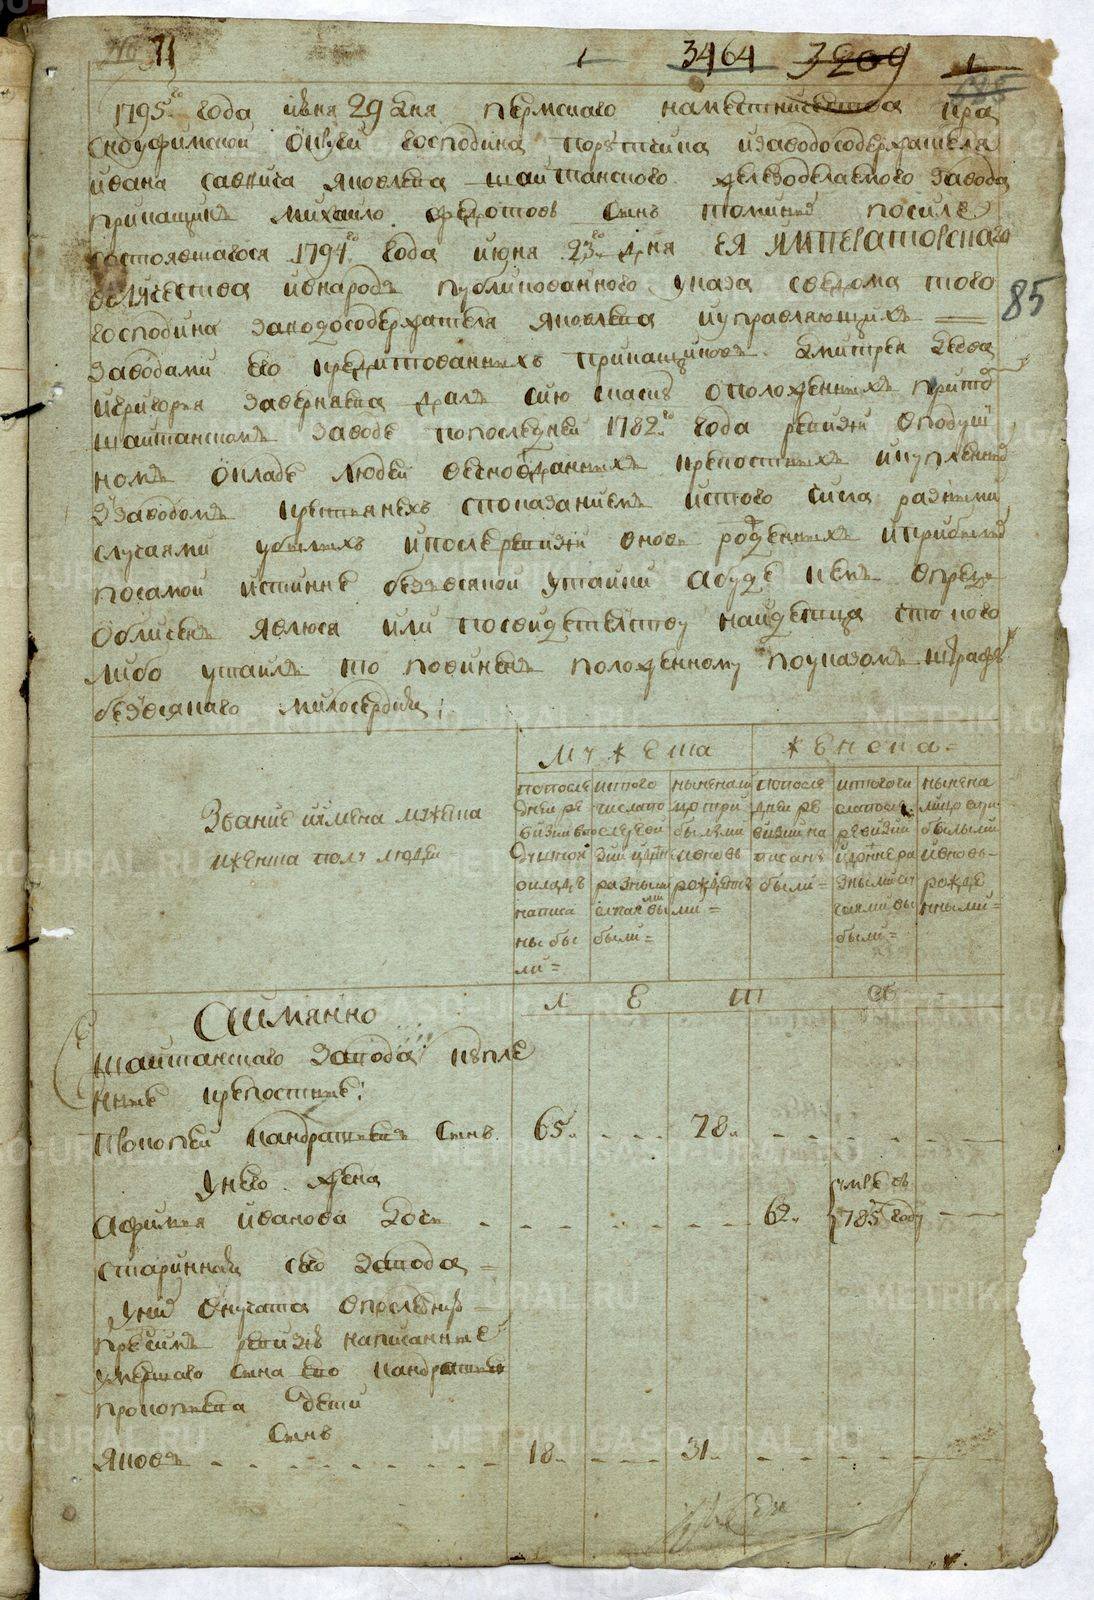 31 1 3464 3209 1
1795го года июня 29 дня пермскаго наместничества кра
сноуфимской округи господина порутчика изаводосодержателя
ивана саввича яковлева шайтанского железоделаемого завода
прикащик михайло федотов сын посиле
состоявшагося 1794го года июня 23го дня ея императорскаго
величества ивнароде публикованного указа сведома того
господина заводосодержателя яковлева иуправляющих
заводами его кредитованных прикащиков дмитрея
игригорья даль сию скаску оположенных при
шайтанском заводе попоследней 1782го года ревизии вподуш
ном окладе людей крепостных икупленных
кзаводом крестьянех споказанием истого числа разными
случаями убылых ипосле ревизии вновь рожденных иприбылых
посамой истинне безвсякой утайки абуде кем впредь
обличен явлюся или посвидетельству найдетца что кого
либо утаил то повинен положенному поуказом штрафу
безвсякаго милосердия
85
мужеска женска
Звание иимена мужеска
иженска полу людей
попосле дней ре визии вподушной окладе написа ны бы ли
истого числа после ревизии разными случаями выбыли
ныне налицо при былыми ивновь рожденными
попосле дней ре визии на писаны были
истого чи сла после ревизии разными слу чаями вы были
ныне на лицо при былыми ивновь рожде нными
л е т
Аимянно
шайтанскаго завода купле
ныя крепостныя
Прокопей Кандратьев сын 65 78
унего жена
Афимья иванова дочь 62 умре в 1785 году
старинная сего завода
уних внучата впоследней
пред сим ревизии написанные
умершаго сына его кандратья
прокопьева дети
сын
Яков 18 31